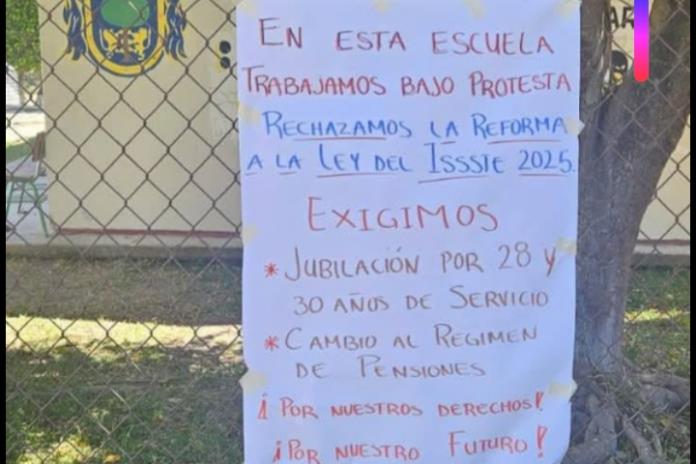 EN ESTA ESCUELA
TRABAJAMOS BAJO PROTESTA
RECHAZAMOS LA REFORMA
A LA LEY DEL ISSSTE 2025.
EXIGIMOS
* JUBILACIÓN POR 28 Y
30 AÑOS DE SERVICIO
* CAMBIO AL RÉGIMEN
DE PENSIONES
¡POR NUESTROS DERECHOS!
¡POR NUESTRO FUTURO!